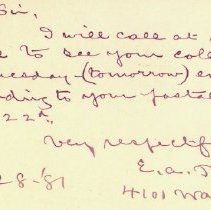 Sir,
I will call at
to see your
uesday (tomorrow) e
ding to your postal
22nd.
Very respectf
E. A.
28-'81
4101 Wa